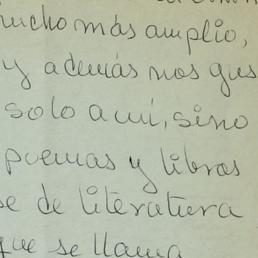 mucho más amplio,
y además nos gus
solo a mí, sino
poemas y libros
se de literatura
que se llama